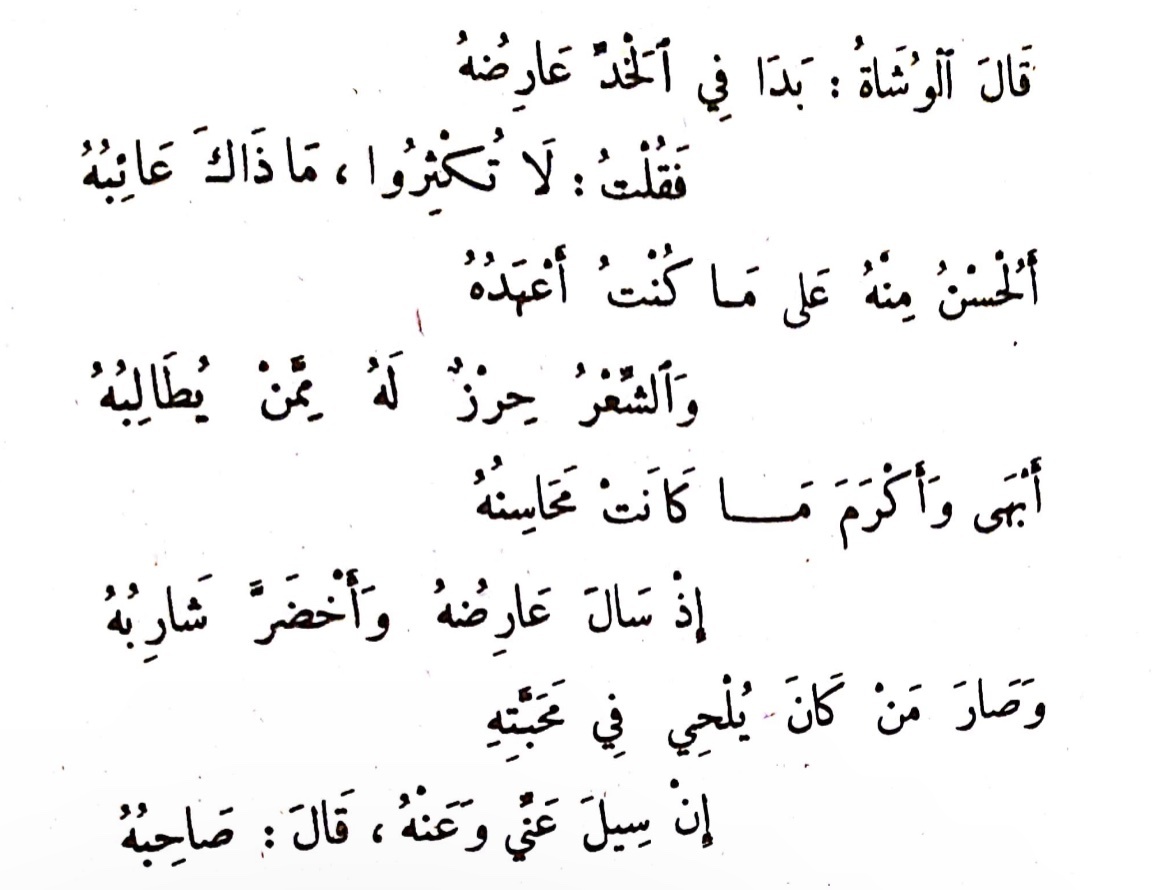 قَالَ ٱلْوُشَاةُ : بَدَا فِي ٱلْخَدِّ عَارِضُهُ
فَقُلْتُ : لَا تُكْثِرُوا ، مَا ذَاكَ عَائِبُهُ
أَلْحُسْنُ مِنْهُ عَلَى مَا كُنْتُ أَعْهَدُهُ
وَٱلشَّعْرُ حِرْزٌ لَهُ مِمَّنْ يُطَالِبُهُ
أَبْهَى وَأَكْرَمَ مَا كَانَتْ مَحَاسِنُهُ
إِذْ سَالَ عَارِضُهُ وَأَخْضَرَّ شَارِبُهُ
وَصَارَ مَنْ كَانَ يُلْحِي فِي مَحَبَّتِهِ
إِنْ سِيلَ عَنِّي وَعَنْهُ ، قَالَ : صَاحِبُهُ